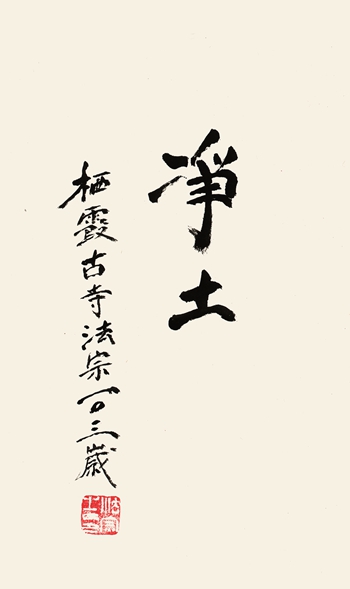 凈土
栖霞古寺法宗一〇三歲